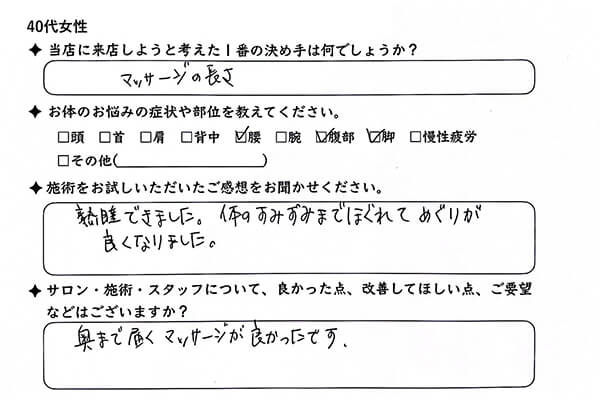 40代女性
✦当店に来店しようと考えた1番の決め手は何でしょうか？
マッサージの長さ
✦お体のお悩みの症状や部位を教えてください。
□頭 □首 □肩 □背中 ☑腰 □腕 ☑腹部 ☑脚 □慢性疲労
□その他( )
✦施術をお試しいただいたご感想をお聞かせください。
熟睡できました。体のすみずみまでほぐれてめぐりが
良くなりました。
✦サロン・施術・スタッフについて、良かった点、改善してほしい点、ご要望
などはございますか？
奥まで届くマッサージが良かったです.